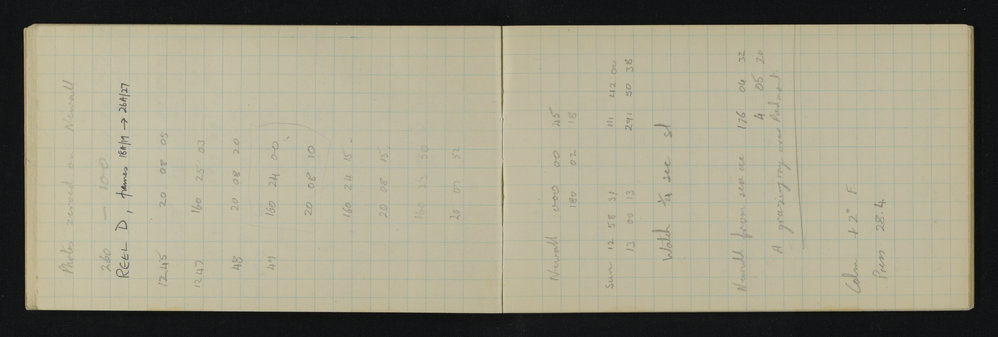 Photos zeroed on Newall
260 — 10.0
REEL D, frames 18A/19 → 26A/27
12 45 20 08 05
12 47 160 25 03
48 20 08 20
49 160 24 00
20 08 10
160 24 15
20 08 15
160 23 50
20 07 52
Newall 000 00 45
180 02 18
Sun 12 58 31 111 42 00
13 00 13 291 50 38
Watch ¼ sec sl
Newall from sea ice 176 04 32
4 05 20
A grazing ray over
Calm +2° F
Press 28.4